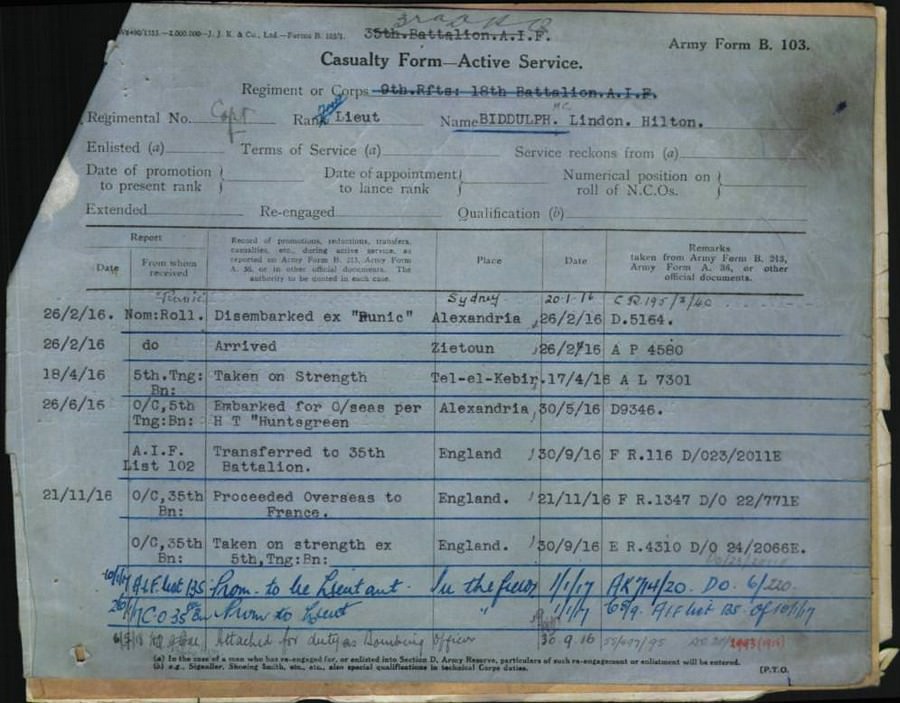 35th.Battalion.A.I.F.
Army Form B. 103.
Casualty Form—Active Service.
Regiment or Corps 9th.Rfts: 18th Battalion.A.I.F.
Regimental No. Capt Rank Lieut Name BIDDULPH. Lindon. Hilton.
Enlisted (a) Terms of Service (a) Service reckons from (a)
Date of promotion to present rank } Date of appointment to lance rank } Numerical position on roll of N.C.Os. }
Extended Re-engaged Qualification (b)
Report
Date From whom received Record of promotions, reductions, transfers, casualties, etc., during active service, as reported on Army Form B. 213, Army Form A. 36, or in other official documents. The authority to be quoted in each case. Place Date Remarks taken from Army Form B. 213, Army Form A. 36, or other official documents.
"Runic" Sydney 20.1.16
26/2/16. Nom:Roll. Disembarked ex "Runic" Alexandria 26/2/16 D.5164.
26/2/16 do Arrived Zietoun 26/2/16 A P 4580
18/4/16 5th.Tng: Bn: Taken on Strength Tel-el-Kebir. 17/4/16 A L 7301
26/6/16 O/C,5th Tng:Bn: Embarked for O/seas per H T "Huntsgreen Alexandria 30/5/16 D9346.
A.I.F. List 102 Transferred to 35th Battalion. England 30/9/16 F R.116 D/023/2011E
21/11/16 O/C,35th Bn: Proceeded Overseas to France. England. 21/11/16 F R.1347 D/O 22/771E
O/C,35th Bn: Taken on strength ex 5th,Tng:Bn: England. 30/9/16 E R.4310 D/O 24/2066E.
10/1/17 A.I.F. List 135 Prom. to be Lieutenant In the field 1/1/17 D.O. 6/220
C.O 35 Bn Prom to Lieut " 1/1/17 AIF List 135 of 10/1/17
Attached for duty as Bombing Officer 30.9.16
(a) In the case of a man who has re-engaged for, or enlisted into Section D, Army Reserve, particulars of such re-engagement or enlistment will be entered.
(b) e.g., Signaller, Shoeing Smith, etc., etc., also special qualifications in technical Corps duties.
[P.T.O.